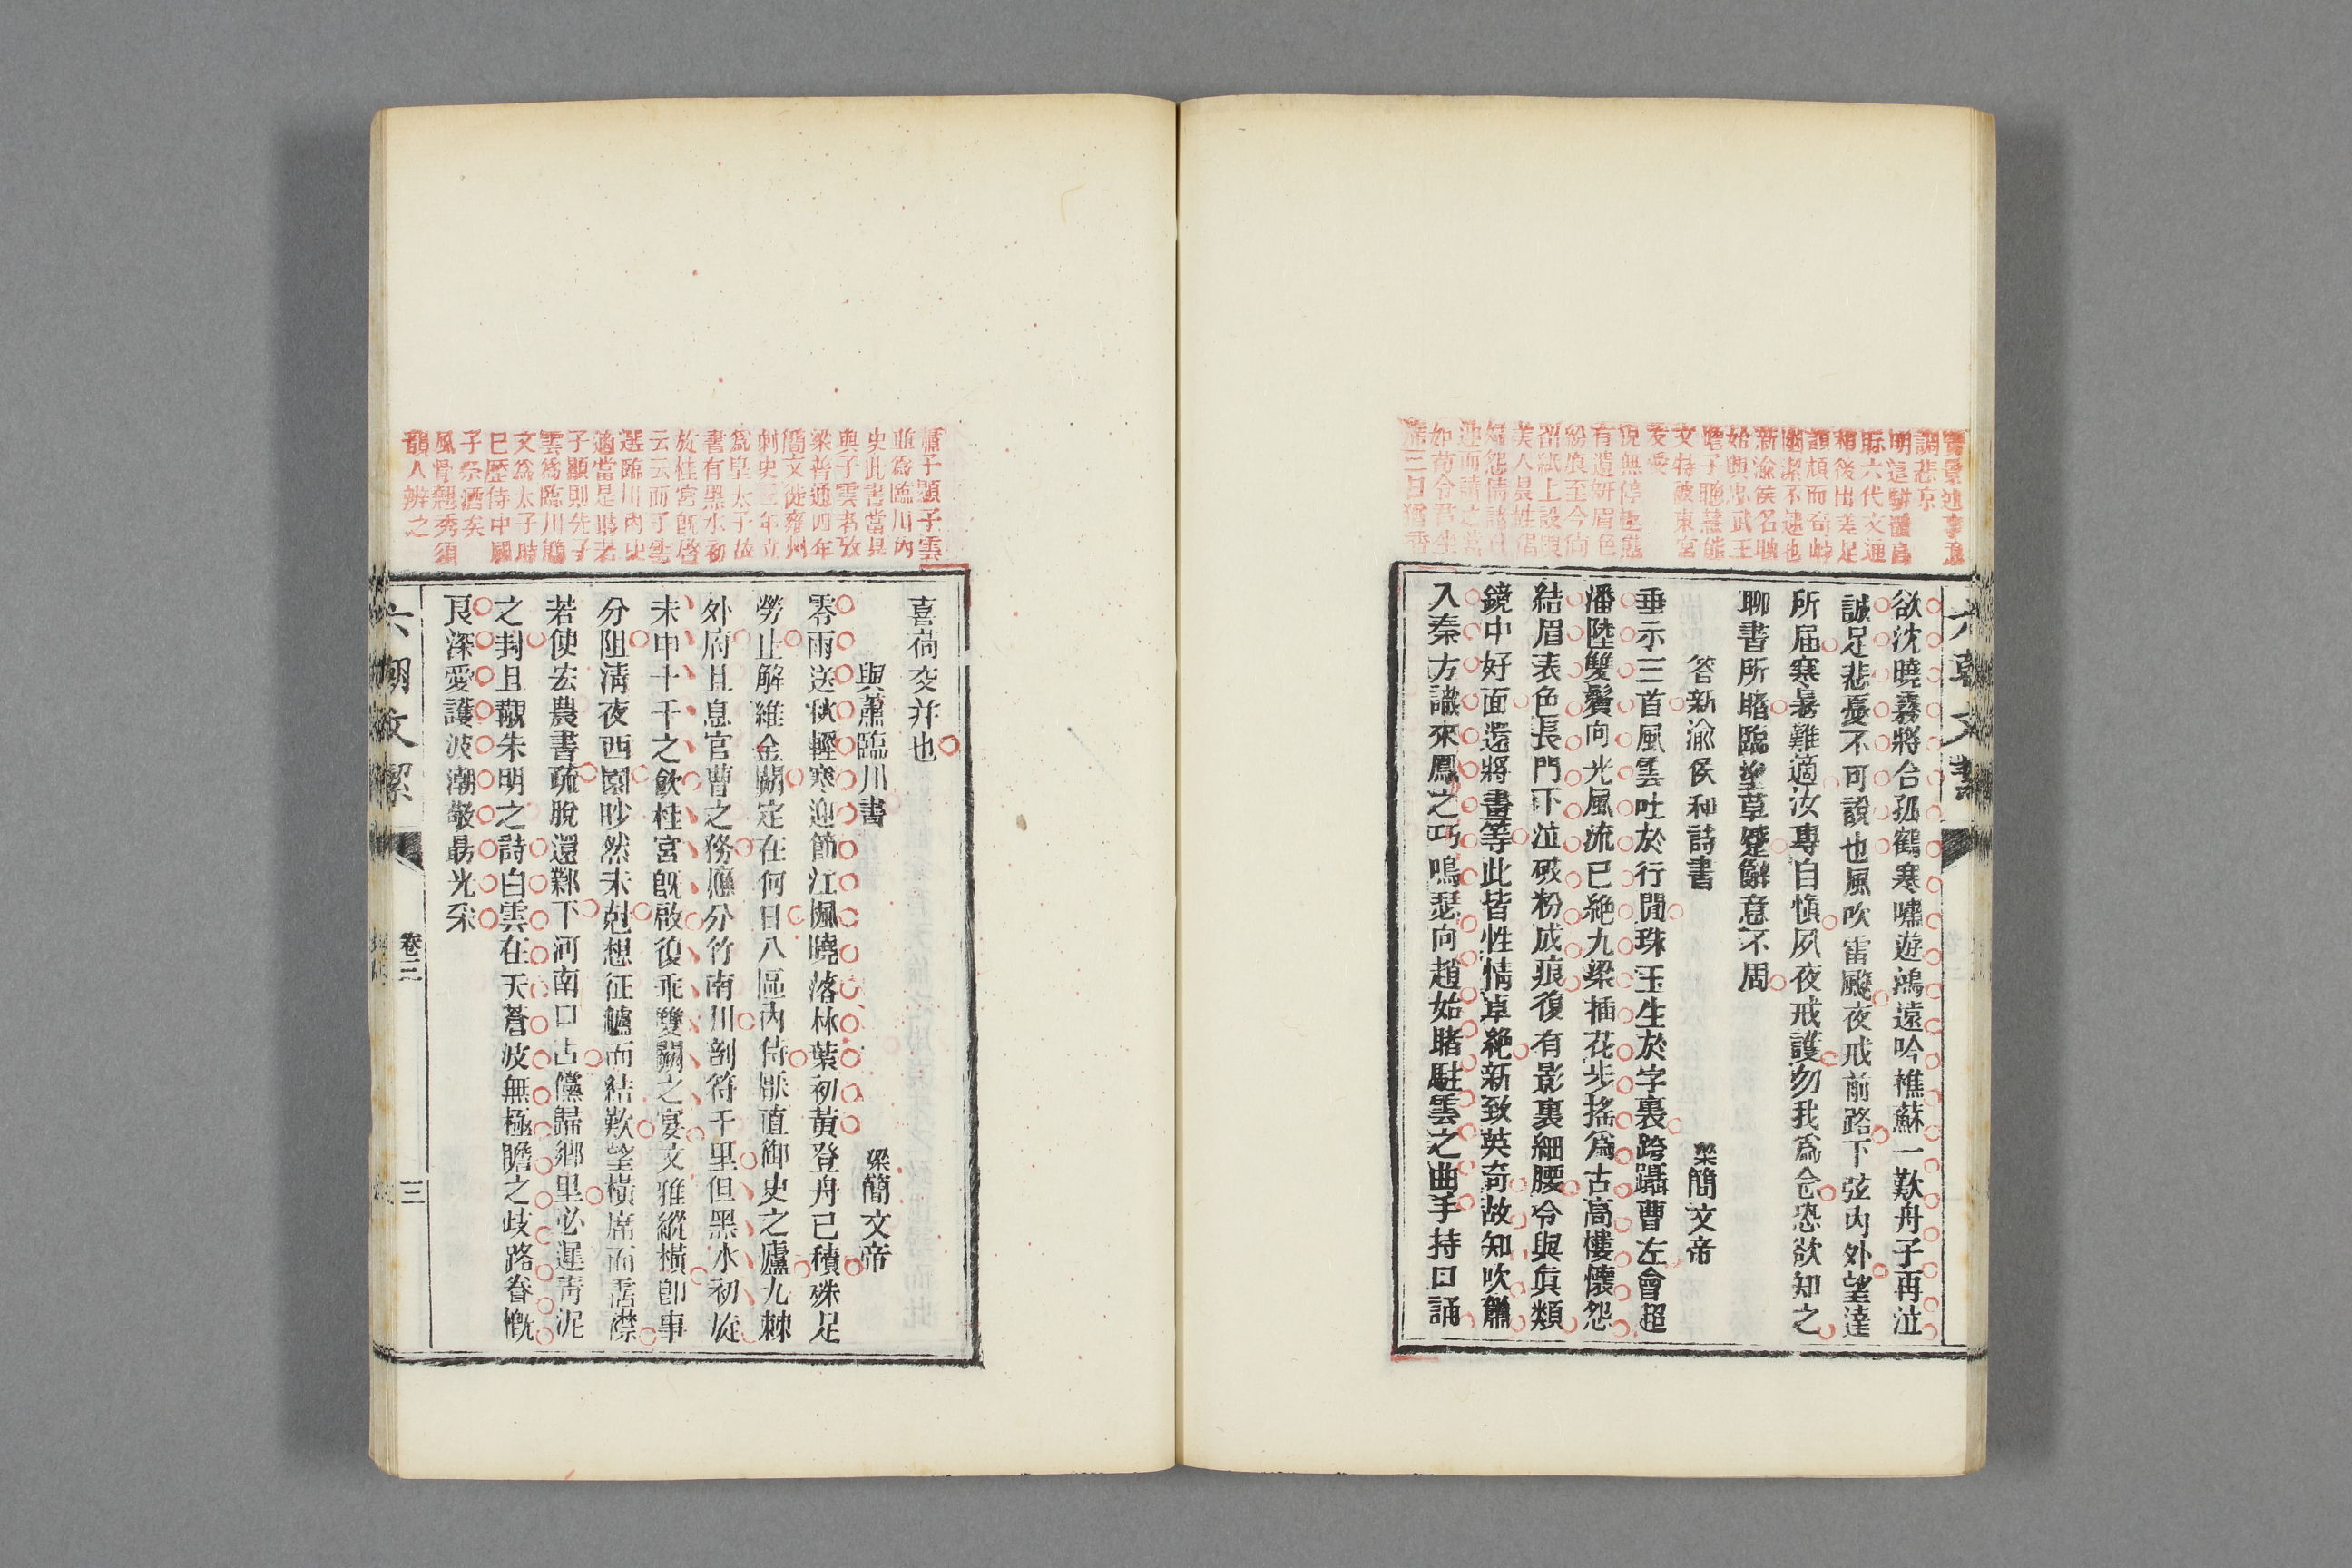 六朝文絜
欲沈曉霧將合孤鶴寒嘯遊鴻遠吟樵蘇一歎舟子再泣
誠足悲憂不可說也風吹雷飈夜戒前路下弦內外望達
所屆寒暑難適汝專自慎夙夜戒護勿我爲念恐欲知之
聊書所睹臨塗草蹙辭意不周
答新渝侯和詩書
梁簡文帝
垂示三首風雲吐於行閒珠玉生於字裏跨躡曹左會超
潘陸雙鬢向光風流已絕九梁插花步搖爲古高樓懷怨
結眉表色長門下泣破粉成痕復有影裏細腰令與眞類
鏡中好面還將畫等此皆性情卓絕新致英奇故知吹簫
入秦方識來鳳之巧鳴瑟向趙始睹駐雲之曲手持口誦
調悲京
明遠駢體高
眎六代文通
稍後出差足
頡頏而奇峭
幽潔不逮也
新渝侯名暎
始興忠武王
憺子聰慧能
文特被東宮
友愛
說無停極態
有遺妍眉色
粉痕至今尚
留紙上設與
美人晨牲偶
如荀令君坐
席三日猶香
喜荷交幷也
與蕭臨川書
梁簡文帝
零雨送秋輕寒迎節江楓曉落林葉初黃登舟已積殊足
勞止解維金闕定在何日八區內侍厭直御史之廬九棘
外府且息官曹之務應分竹南川剖符千里但黑水初旋
未申十千之飮桂宮旣啟復乖雙闕之宴文雅縱橫卽事
分阻清夜西園眇然未尅想征艫而結歎望橫席而霑襟
若使宏農書疏脫還鄴下河南口占儻歸鄉里必遲靑泥
之封且覯朱明之詩白雲在天蒼波無極瞻之歧路眷慨
良深愛護波潮敬勗光采
蕭子顯子雲
並爲臨川內
史此書當是
與子雲者攷
梁普通四年
簡文徙雍州
刺史三年立
爲皇太子故
書有黑水初
旋桂宮旣啓
云云而子雲
選臨川內史
適當是時若
子顯則先子
雲爲臨川簡
文爲太子時
已歷侍中國
子祭酒矣
風骨翹秀須
韻人辨之
六朝文絜
卷三
三